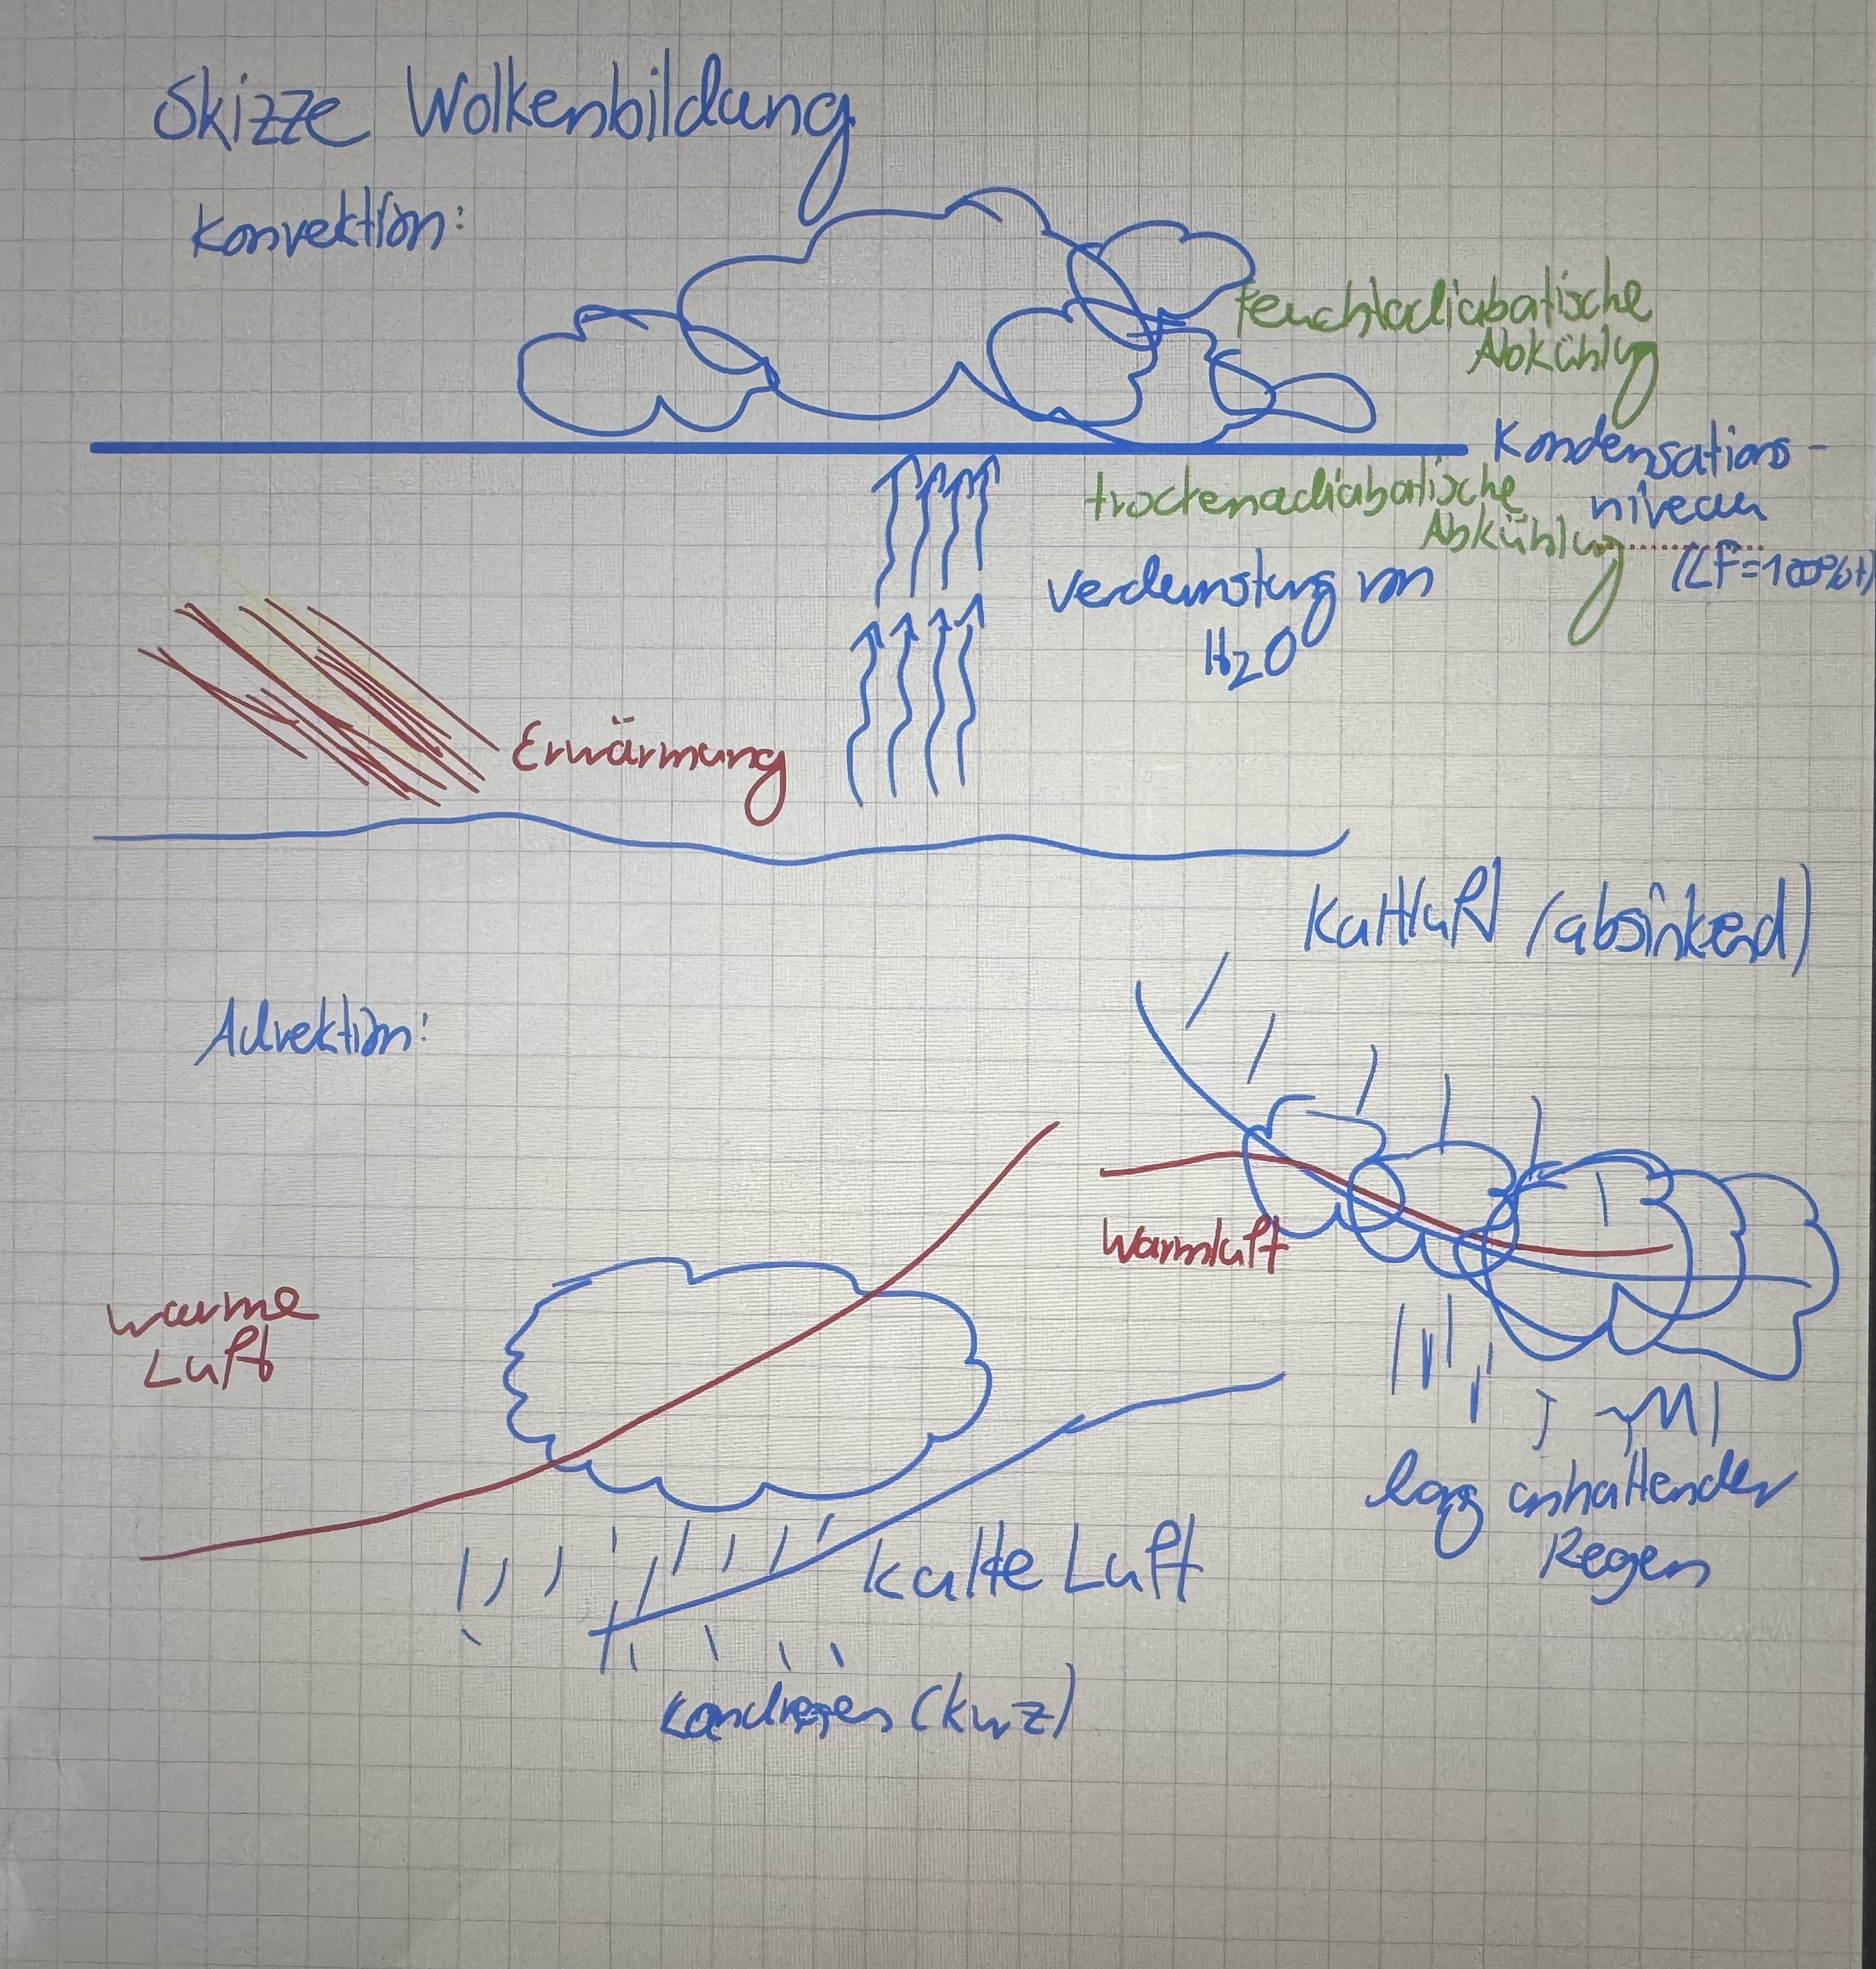 Skizze Wolkenbildung
Konvektion:
Feuchtadiabatische
Abkühlg
Kondensations-
niveau
(LF=100%+)
trockenadiabatische
Abkühlg
Verdunstung von
H2O
Erwärmung
Kaltluft (absinkend)
Advektion:
Warmluft
warme
Luft
lang anhaltender
Regen
kalte Luft
(kurz)